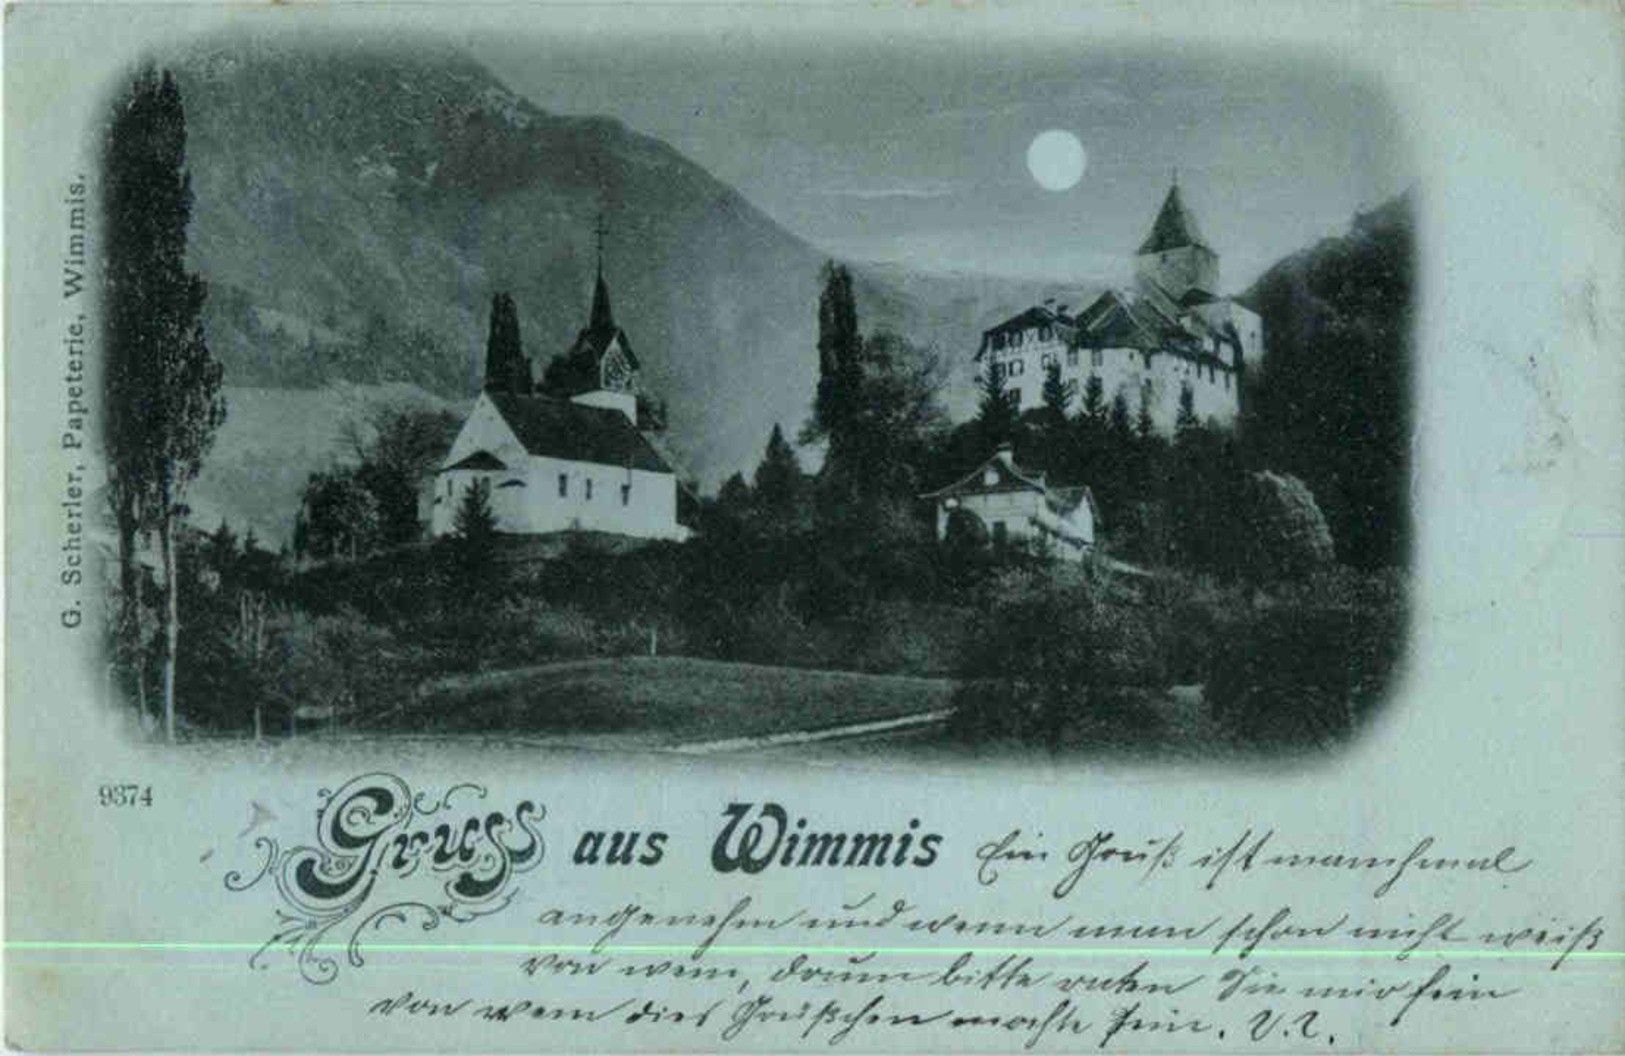 G. Scherler, Papeterie, Wimmis.
9374
Gruss aus Wimmis
Ein Gruß ist manchmal
angenehm und wenn man schon nicht weiß
von wem, darum bitte raten Sie mir fein
von wem dies Grüßchen möchte sein.